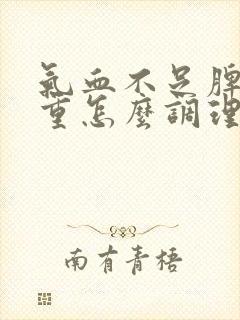 氣血不足脾
重怎麼調理
南有青梧